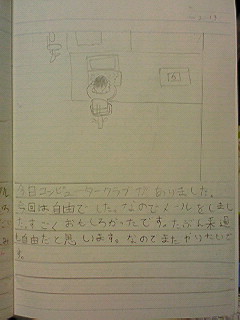 今日コンピュータークラブがありました。
今回は自由でした。なのでメールをしまし
た。すごくおもしろかったです。たぶん来週
も自由だと思います。なのでまたやりたいで
す。